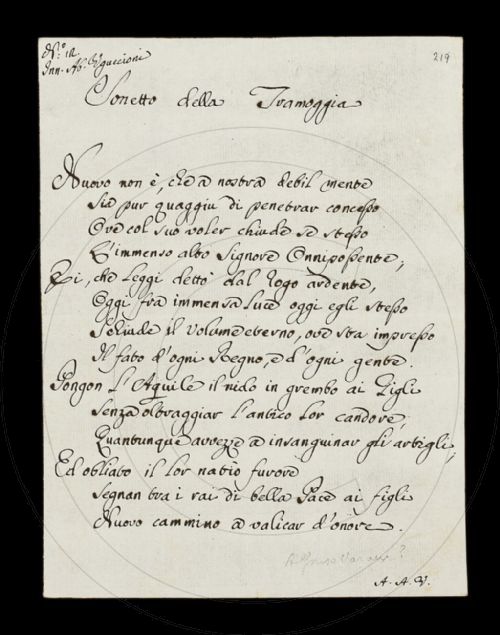 N.º 12.
Inn. Ab. Uguccioni
219
Sonetto della Tramoggia
Nuovo non è, che a nostra debil mente
Sia pur quaggiu di penetrar concesso
Ove col suo voler chiude se stesso
L'immenso alto Signore Onnipossente;
Ei, che leggi dettò dal rogo ardente,
Oggi fra immensa luce oggi egli stesso
Schiude il volume eterno, ove sta impresso
Il fato d'ogni Regno, e d'ogni gente.
Pongon l'Aquile il nido in grembo ai Gigli
Senza oltraggiar l'antico lor candore,
Quantunque avvezze a insanguinar gli artigli;
Ed obliato il lor natio furore
Segnan tra i rai di bella Pace ai figli
Nuovo cammino a valicar d'onore.
A. A. V.